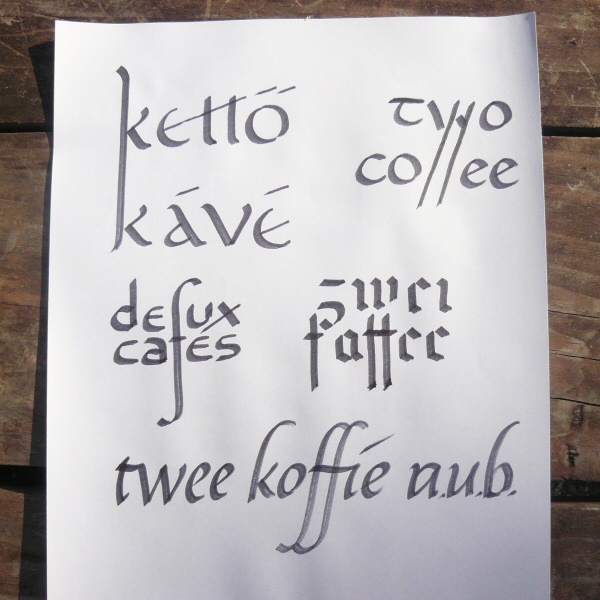 kettő
kávé
two
coffee
deux
cafés
zwei
kaffee
twee koffie a.u.b.